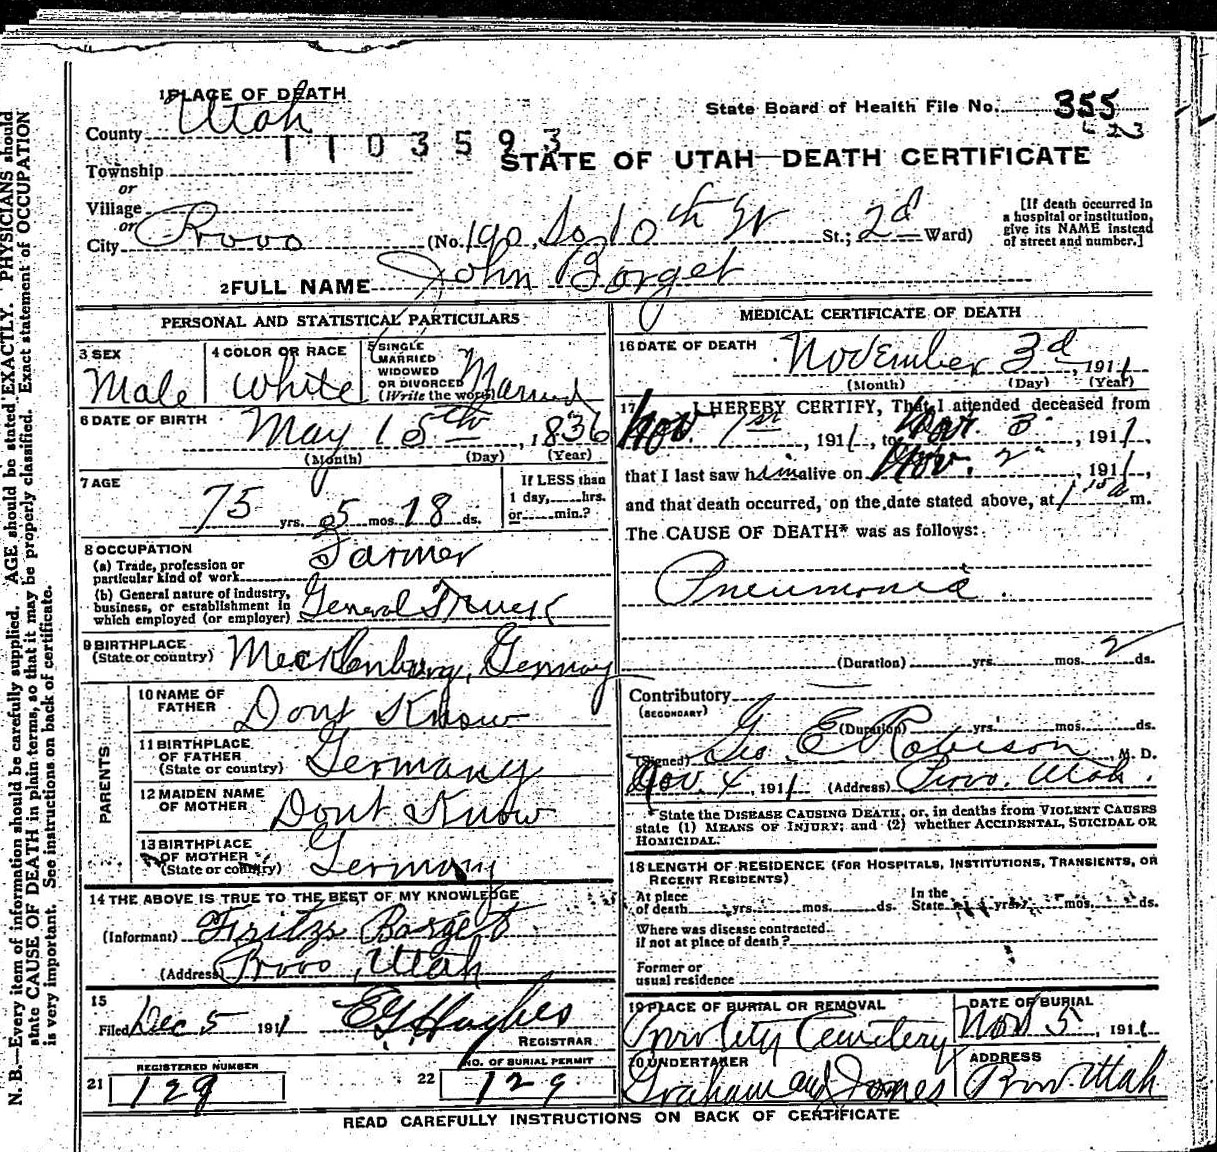 1 PLACE OF DEATH
State Board of Health File No. 355
County Utah
1103593
STATE OF UTAH—DEATH CERTIFICATE
Township
or
Village
or
City Provo (No. 190 So 10th W St.; 2d Ward)
[If death occurred in
a hospital or institution,
give its NAME instead
of street and number.]
2 FULL NAME John Borget
PERSONAL AND STATISTICAL PARTICULARS
3 SEX
Male
4 COLOR OR RACE
White
5 SINGLE
MARRIED
WIDOWED
OR DIVORCED
(Write the word) Married
6 DATE OF BIRTH
May 15th, 1836
(Month) (Day) (Year)
7 AGE
75 yrs. 5 mos. 18 ds.
If LESS than
1 day,......hrs.
or......min.?
8 OCCUPATION
(a) Trade, profession or
particular kind of work Farmer
(b) General nature of industry,
business, or establishment in
which employed (or employer) General Truck
9 BIRTHPLACE
(State or country) Mecklenburg, Germany
PARENTS
10 NAME OF
FATHER Dont Know
11 BIRTHPLACE
OF FATHER
(State or country) Germany
12 MAIDEN NAME
OF MOTHER Dont Know
13 BIRTHPLACE
OF MOTHER
(State or country) Germany
14 THE ABOVE IS TRUE TO THE BEST OF MY KNOWLEDGE
(Informant) Fritz Borget
(Address) Provo, Utah
15
Filed Dec 5 1911 E G Hughes
REGISTRAR
REGISTERED NUMBER
21 129
NO. OF BURIAL PERMIT
22 129
MEDICAL CERTIFICATE OF DEATH
16 DATE OF DEATH
November 3d, 1911
(Month) (Day) (Year)
17 I HEREBY CERTIFY, That I attended deceased from
Nov. 1st, 1911, to Nov. 3, 1911,
that I last saw him alive on Nov. 2, 1911,
and that death occurred, on the date stated above, at 1 15 a m.
The CAUSE OF DEATH* was as follows:
Pneumonia.
(Duration) yrs. mos. 2 ds.
Contributory
(SECONDARY)
(Duration) yrs. mos. ds.
(Signed) Geo E Robison, M. D.
Nov. 4, 1911 (Address) Provo, Utah.
* State the DISEASE CAUSING DEATH, or, in deaths from VIOLENT CAUSES
state (1) MEANS OF INJURY; and (2) whether ACCIDENTAL, SUICIDAL OR
HOMICIDAL.
18 LENGTH OF RESIDENCE (FOR HOSPITALS, INSTITUTIONS, TRANSIENTS, OR
RECENT RESIDENTS)
At place
of death yrs. mos. ds.
In the
State yrs. mos. ds.
Where was disease contracted
if not at place of death?
Former or
usual residence
19 PLACE OF BURIAL OR REMOVAL
Provo City Cemetery
DATE OF BURIAL
Nov 5, 1911
20 UNDERTAKER
Graham and Jones
ADDRESS
Provo Utah
READ CAREFULLY INSTRUCTIONS ON BACK OF CERTIFICATE
N. B.—Every item of information should be carefully supplied. AGE should be stated EXACTLY. PHYSICIANS should
state CAUSE OF DEATH in plain terms, so that it may be properly classified. Exact statement of OCCUPATION
is very important. See instructions on back of certificate.